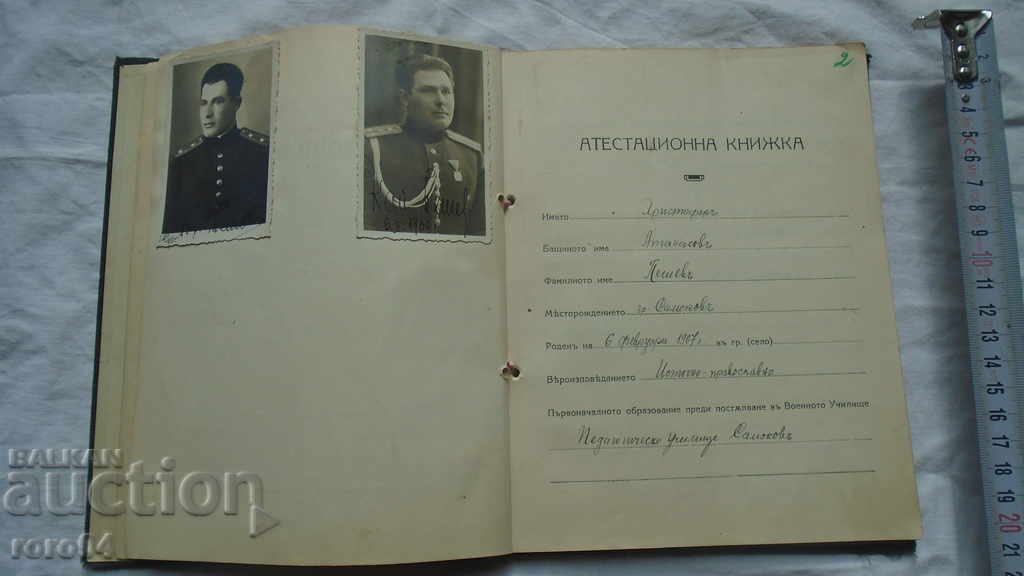 2
АТЕСТАЦИОННА КНИЖКА
Името Христофоръ
Бащиното име Атанасовъ
Фамилното име Пешевъ
Мѣсторождението гр. Самоковъ
Роденъ на 6 февруари 1907 г. въ гр. (село)
Вѣроизповѣданието Источно-православно
Първоначалното образование преди постѫпване въ Военното Училище
Педагогическо училище Самоковъ
BALKAN
auction
roro94
2
3
4
5
6
7
8
9
10
11
12
13
14
15
16
17
18
19
20
21